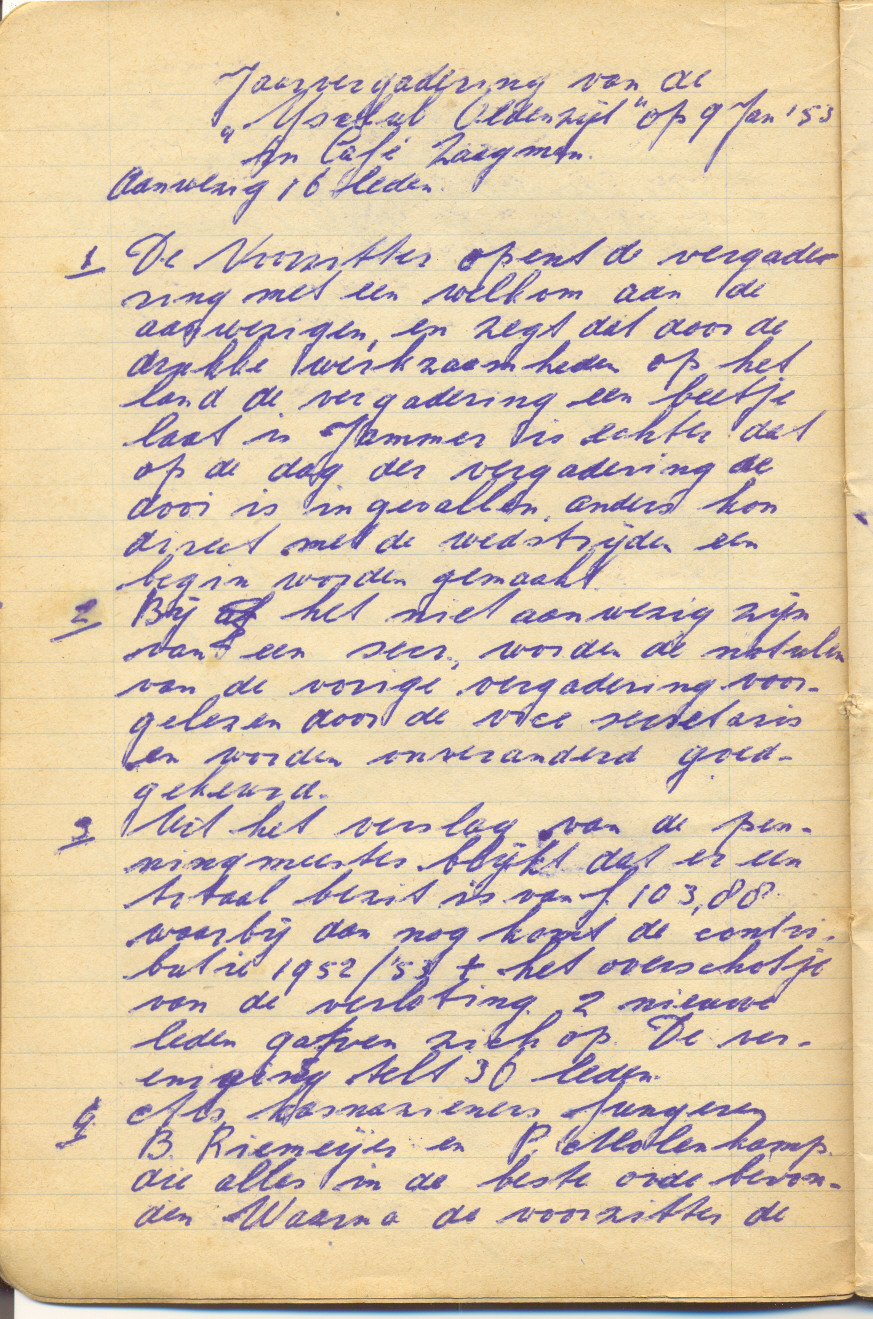 Jaarvergadering van de
"Ysclub Oldenzijl" op 9 Jan '53
in Café Zaagman.
Aanwezig 16 leden.
1 De Voorzitter opent de vergade-
ring met een welkom aan de
aanwezigen, en zegt dat door de
drukke werkzaamheden op het
land de vergadering een beetje
laat is Jammer is echter dat
op de dag der vergadering de
dooi is ingevallen, anders kon
direct met de wedstrijden een
begin worden gemaakt.
2 Bij het niet aanwezig zijn
van een secr., worden de notulen
van de vorige vergadering voor-
gelezen door de vice secretaris
en worden onveranderd goed-
gekeurd.
3 Uit het verslag van de pen-
ningmeester blijkt dat er een
totaal bezit is van f 103,88
waarbij dan nog komt de contri-
butie 1952/'53 + het overschotje
van de verloting. 2 nieuwe
leden gaven zich op. De ver-
eniging telt 36 leden.
4 Als kasnazieners fungeren
B. Riemeijer en P. Molenkamp.
die alles in de beste orde bevon-
den Waarna de voorzitter de